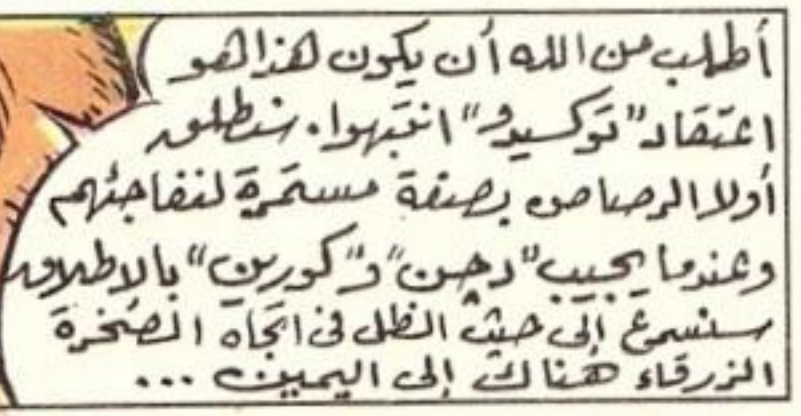 أطلب من الله أن يكون هذا هو
اعتقاد "توكسيدو" انتبهوا. سنطلق
أولا الرصاص بصفة مستمرة لنفاجئهم
وعندما يجيب "دجن" و"كورين" بالإطلاق
سنسرع إلى حيث الظل في اتجاه الصخرة
الزرقاء هناك إلى اليمين ...